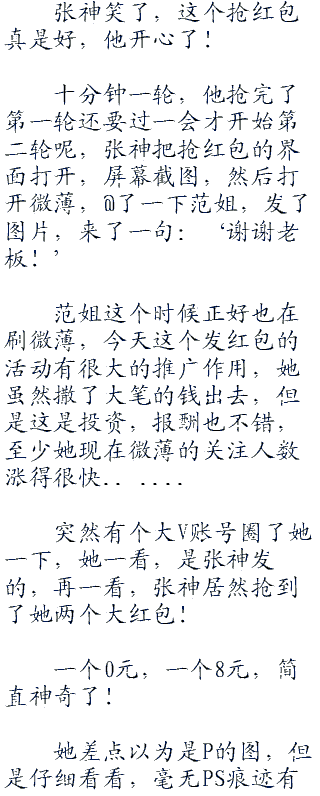 张神笑了，这个抢红包
真是好，他开心了！
十分钟一轮，他抢完了
第一轮还要过一会才开始第
二轮呢，张神把抢红包的界
面打开，屏幕截图，然后打
开微薄，@了一下范姐，发了
图片，来了一句：‘谢谢老
板！’
范姐这个时候正好也在
刷微薄，今天这个发红包的
活动有很大的推广作用，她
虽然撒了大笔的钱出去，但
是这是投资，报酬也不错，
至少她现在微薄的关注人数
涨得很快．．．．．．
突然有个大V账号圈了她
一下，她一看，是张神发
的，再一看，张神居然抢到
了她两个大红包！
一个0元，一个8元，简
直神奇了！
她差点以为是P的图，但
是仔细看看，毫无PS痕迹有